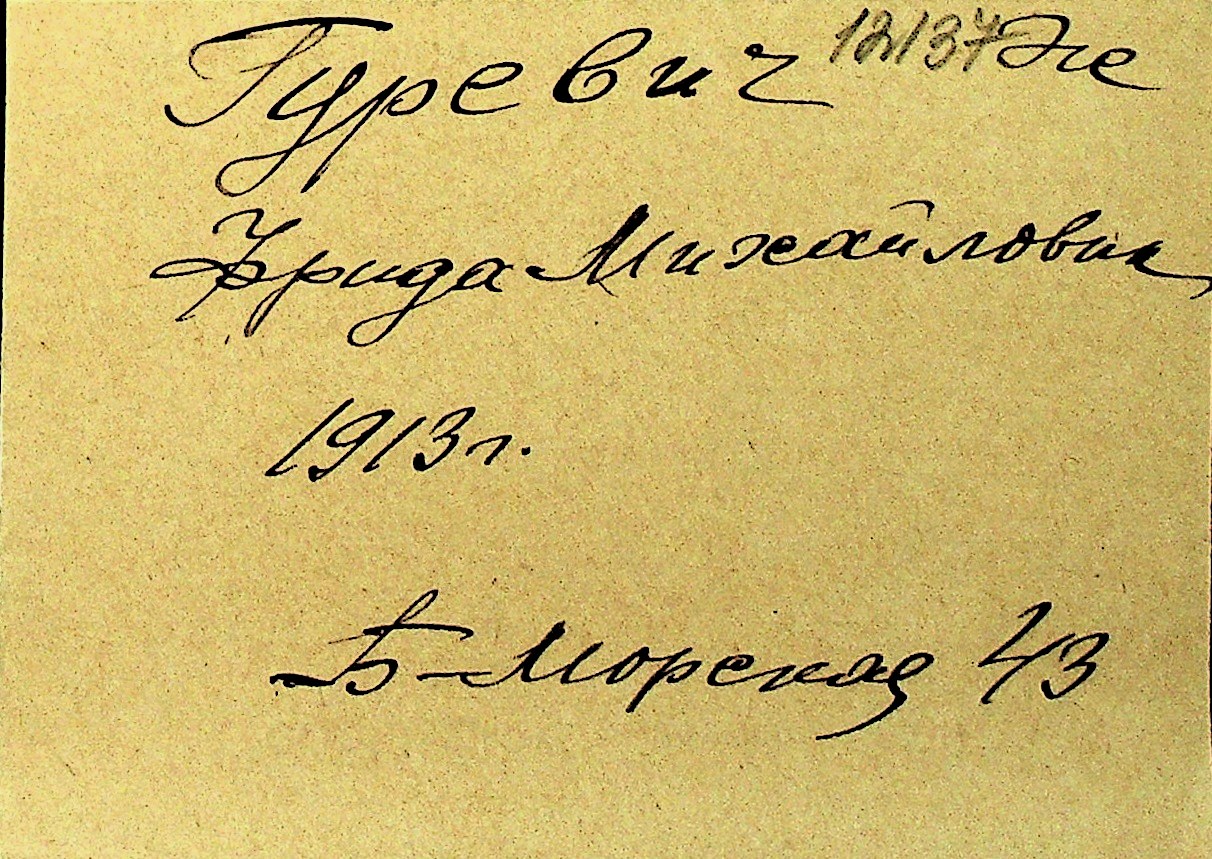 Гуревич 12137 Же
Фрида Михайлович
1913 г.
Б-Морская 43